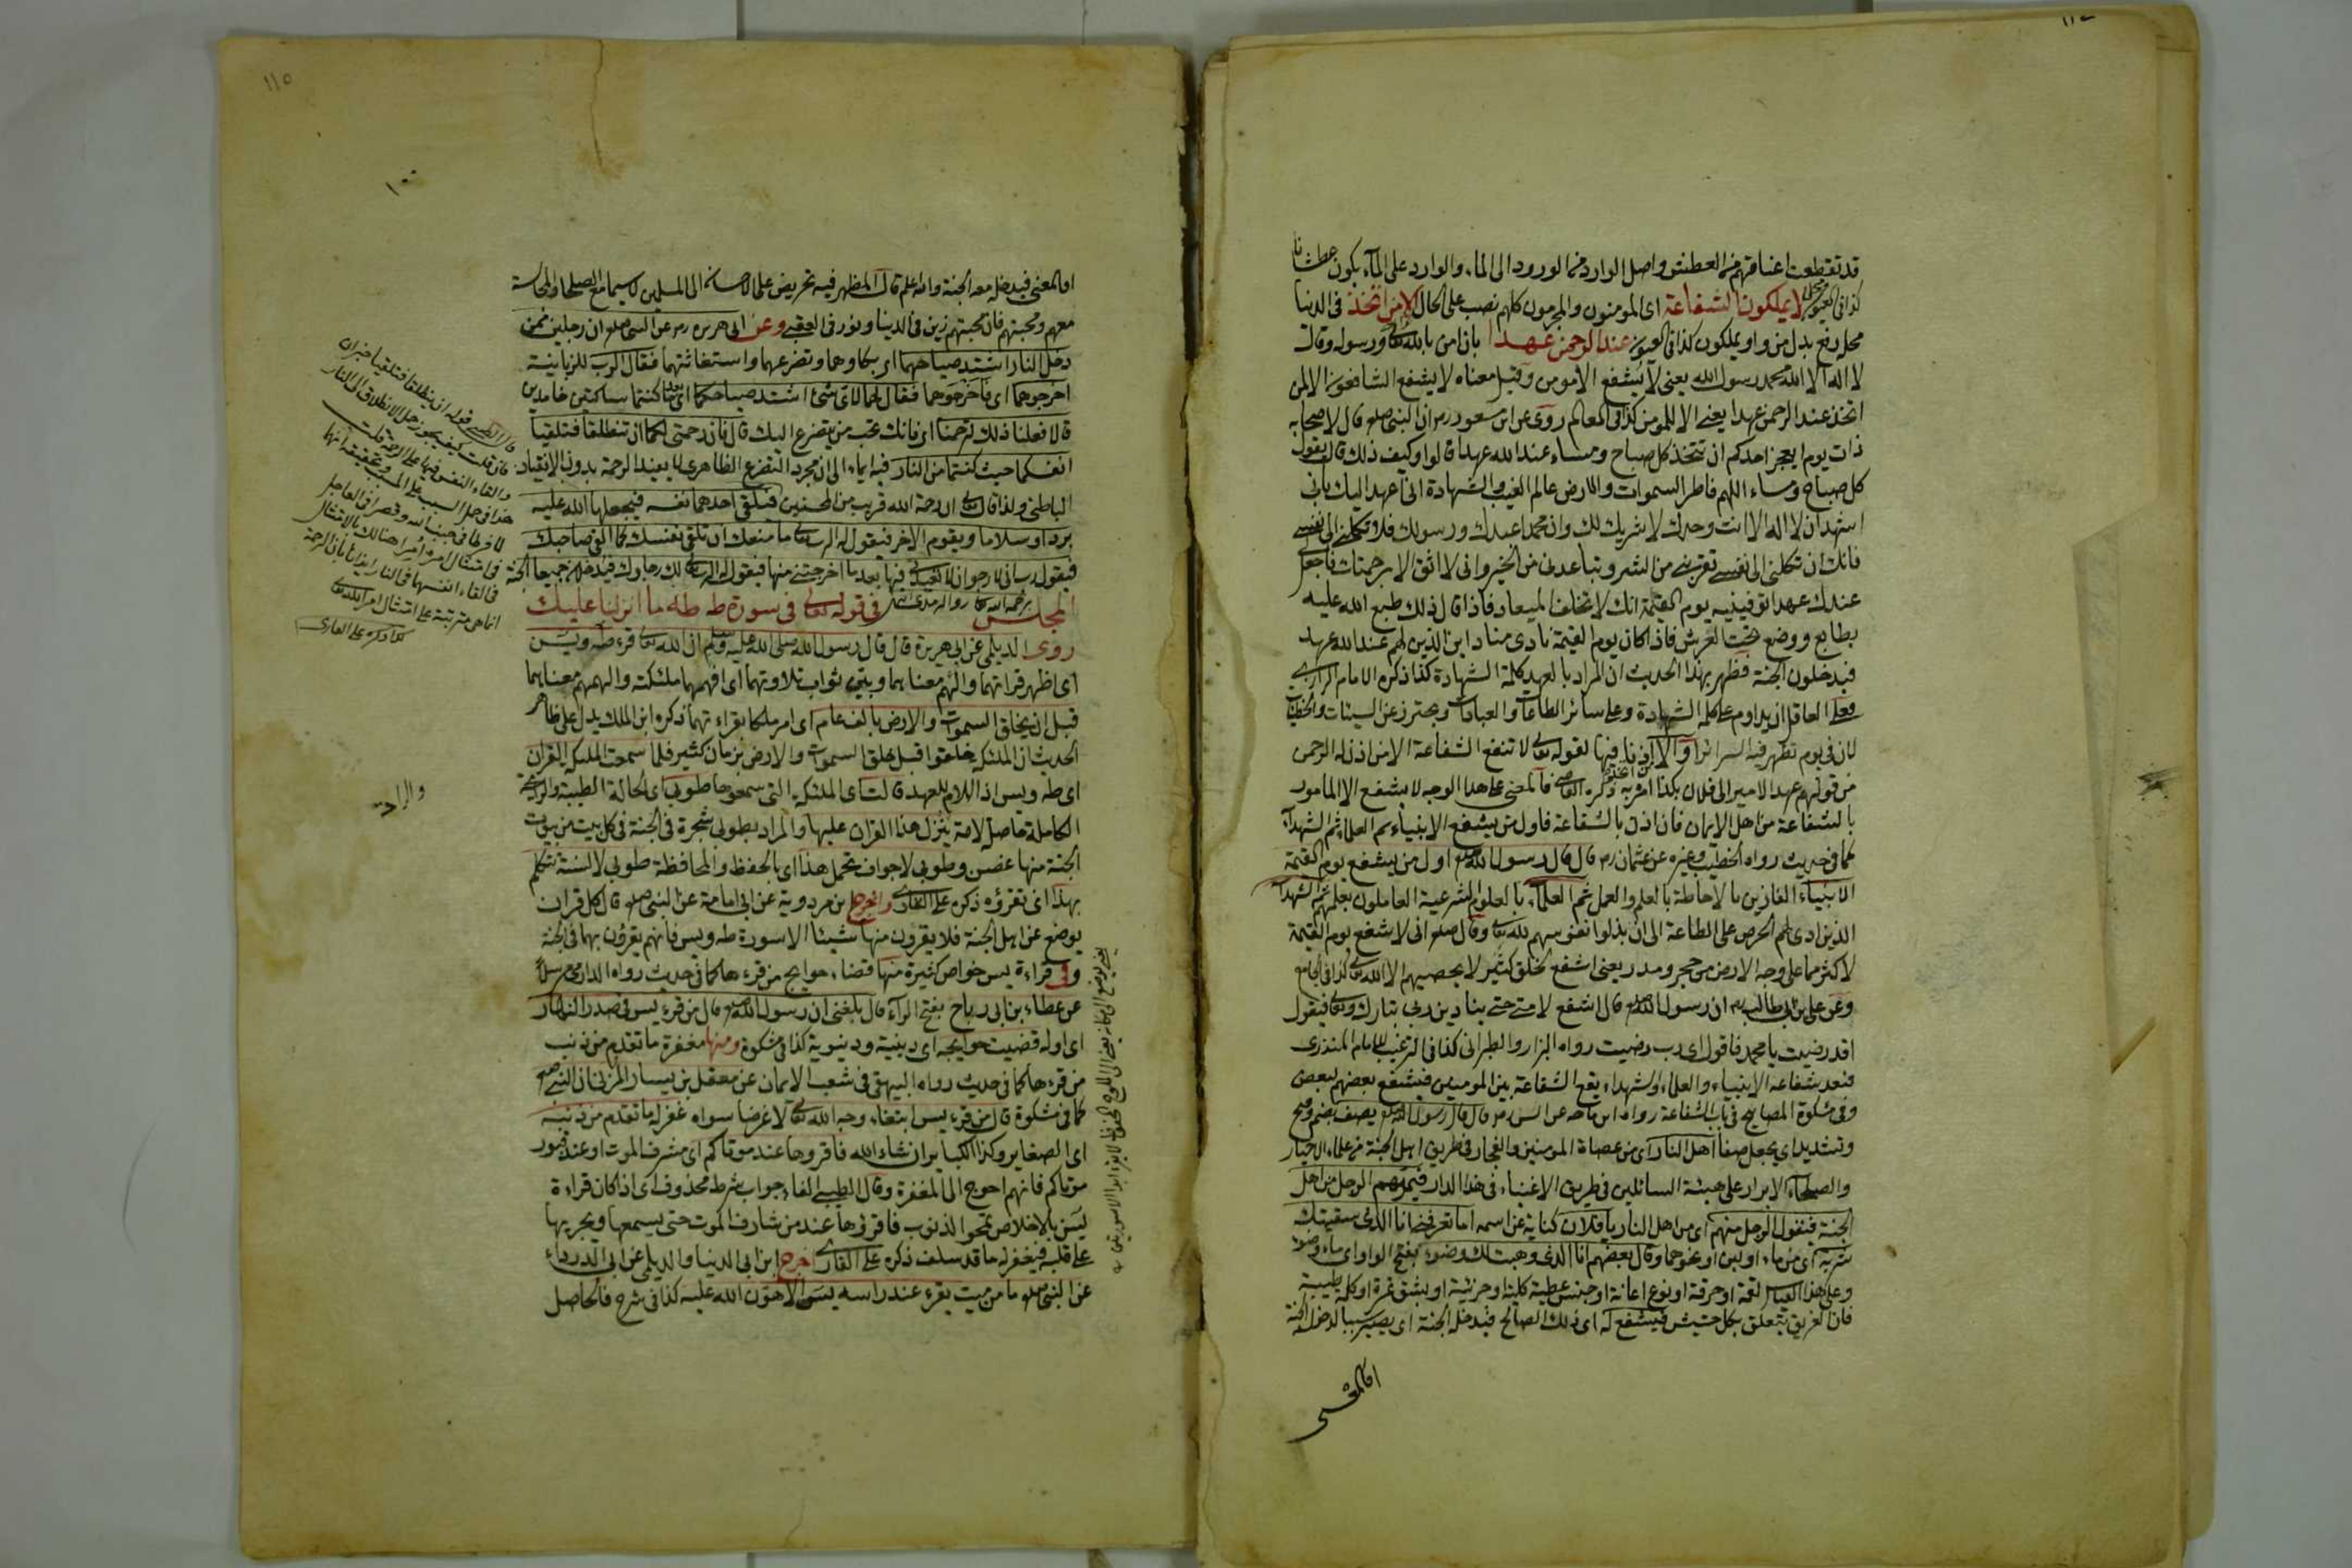 قد تقطعت اعناقهم من العطش واصل الوارد من الورود الى الماء والوارد على الماء يكون عطشانا
كذا فى العيون لا يملكون الشفاعة اى المؤمنون والمجرمون كلهم نصب على الحال الا من اتخذ فى الدنيا
محله رفع بدل من واو يملكون كذا فى العيون عند الرحمن عهدا بان امن بالله تعالى ورسوله وقالت
لا اله الا الله محمد رسول الله يعنى لا يشفع الا مومن وقيل معناه لا يشفع الشافعون الا لمن
اتخذ عند الرحمن عهدا يعنى الا للمومن كذا فى المعالم روى عن ابن مسعود رض ان النبى صلعم قال لاصحابه
ذات يوم ايعجز احدكم ان يتخذ كل صباح ومساء عند الله عهدا قالوا وكيف ذلك قال يقول
كل صباح ومساء اللهم فاطر السموات والارض عالم الغيب والشهادة انى اعهد اليك بانى
اشهد ان لا اله الا انت وحدك لا شريك لك وان محمدا عبدك ورسولك فلا تكلنى الى نفسى
فانك ان تكلنى الى نفسى تقربنى من الشر وتباعدنى من الخير وانى لا اثق الا برحمتك فاجعل
عندك عهدا توفينيه يوم القيمة انك لا تخلف الميعاد فاذا قال ذلك طبع الله عليه
بطابع ووضع تحت العرش فاذا كان يوم القيمة نادى مناد اين الذين لهم عند الله عهد
فيدخلون الجنة فظهر بهذا الحديث ان المراد بالعهد كلمة الشهادة كذا ذكره الامام الرازى
فعلى العاقل ان يداوم على كلمة الشهادة وعلى سائر الطاعات والعبادات ويحترز عن السيئات والخطيئات
لان فى يوم تظهر فيه السرائر او الا لاذن فيها لقوله تعالى لا تنفع الشفاعة الا من اذن له الرحمن
من قولهم عهد الامير الى فلان بكذا امر به ذكره القاضى فالمعنى على هذا الوجه لا يشفع الا المامور
بالشفاعة من اهل الايمان فان اذن بالشفاعة فاول من يشفع الانبياء ثم العلماء ثم الشهداء
كما فى حديث رواه الخطيب وغيره عن عثمان رض قال قال رسول الله صلعم اول من يشفع يوم القيمة
الانبياء الفائزين بالاحاطة بالعلم والعمل ثم العلماء بالعلوم الشرعية العاملون بعلمهم ثم الشهداء
الذين ادى لهم الحرص على الطاعة الى ان بذلوا نفوسهم لله تعالى وقال صلعم انى لاشفع يوم القيمة
لاكثر مما على وجه الارض من حجر ومدر يعنى اشفع لخلق كثير لا يحصيهم الا الله تعالى كذا فى الجامع
وعن على بن ابى طالب رض ان رسول الله صلعم قال اشفع لامتى حتى ينادينى ربى تبارك وتعالى فيقول
اقد رضيت يا محمد فاقول اى رب رضيت رواه البزار والطبرانى كذا فى الترغيب للامام المنذرى
فبعد شفاعة الانبياء والعلماء والشهداء يقع الشفاعة بين المومنين فيشفع بعضهم لبعض
وفى مشكوة المصابيح فى باب الشفاعة رواه ابن ماجه عن انس رض قال قال رسول الله صلعم يصف بضم وفتح
وتشديد اى يجعل صفا اهل النار اى من عصاة المومنين والفجار فى طريق اهل الجنة من علماء الاخيار
والصلحاء الابرار على هيئة السائلين فى طريق الاغنياء فى هذا الدار فيمر بهم الرجل من اهل
الجنة فيقول الرجل منهم اى من اهل النار يا فلان كناية عن اسمه اما تعرفنى انا الذى سقيتك
شربة اى من ماء او لبن او نحوهما وقال بعضهم انا الذى وهبت لك وضوء بفتح الواو اى ماء وضوء
وعلى هذا القياس لقمة او خرقة او نوع اعانة او جنس عطية كلية او جزئية او بشق تمرة او كلمة طيبة
فان الغريق يتعلق بكل حشيش فيشفع له اى ذلك الصالح فيدخله الجنة اى يصير سببا لدخول الجنة
١١٥
اما لمعنى فيدخله معه الجنة والله اعلم قال المظهر فيه تحريض على الاحسان الى المسلمين لا سيما مع الصلحاء والمجالسة
معهم ومحبتهم فان محبتهم زين فى الدنيا ونور فى العقبى وعن ابى هريرة رض عن النبى صلعم ان رجلين ممن
دخل النار اشتد صياحهما اى بكاوهما وتضرعهما واستغاثتهما فقال الرب للزبانية
اخرجوهما اى فاخرجوهما فقال لهما لاى شئ اشتد صياحكما اى بعد ما كنتما ساكتين خامدين
قالا فعلنا ذلك لترحمنا اى فانك تحب من يتضرع اليك قال فان رحمتى لكما ان تنطلقا فتلقيا
انفسكما حيث كنتما من النار فيه ايماء الى ان مجرد التضرع الظاهرى لا يفيد الرحمة بدون الانقياد
الباطنى ولذا قال تعالى ان رحمة الله قريب من المحسنين فيلقى احدهما نفسه فيجعلها الله عليه
بردا وسلاما ويقوم الاخر فيقول له الرب تعالى ما منعك ان تلقى نفسك كما القى صاحبك
فيقول رب انى لارجو ان لا تعيدنى فيها بعد ما اخرجتنى منها فيقول له الرب تعالى لك رجاوك فيدخلان جميعا الجنة
برحمة الله تعالى رواه الترمذى
المجلس فى قوله تعالى فى سورة طه طه ما انزلنا عليك
روى الديلمى عن ابى هريرة قال قال رسول الله صلى الله عليه وسلم ان الله تعالى قرء طه ويس
اى اظهر قراتهما والهم معناهما وبين ثواب تلاوتهما اى افهمهما ملئكته والهمهم معناهما
قبل ان يخلق السموات والارض بالف عام اى امر ملكا بقراءتهما ذكره ابن الملك يدل على ظاهر
الحديث ان الملئكة خلقوا قبل خلق السموات والارض بزمان كثير فلما سمعت الملئكة القران
اى طه ويس اذ اللام للعهد قالت اى الملئكة التى سمعوها طوبى اى الحالة الطيبة والراحة
الكاملة حاصل لامة ينزل هذا القران عليها والمراد بطوبى شجرة فى الجنة فى كل بيت من بيوت
الجنة منها غصن وطوبى لاجواف تحمل هذا اى بالحفظ والمحافظة طوبى لالسنة تتكلم
بهذا اى تقرؤه ذكره على القارى واخرج ابن مردوية عن ابى امامة عن النبى صلعم قال كل قران
يوضع عن اهل الجنة فلا يقرون منها شيئا الا سورة طه ويس فانهم يقرؤن بهما فى الجنة
وفى قراءة يس خواص كثيرة منها قضاء حوايج من قرءها كما فى حديث رواه الدارمى مرسلا
عن عطاء بن ابى رباح بفتح الراء قال بلغنى ان رسول الله صلعم قال من قرء يس فى صدر النهار
اى اوله قضيت حوايجه اى دينية ودنيوية كذا فى مشكوة ومنها مغفرة ما تقدم من ذنب
من قرءها كما فى حديث رواه البيهقى فى شعب الايمان عن معقل بن يسار المزنى ان النبى صلعم
كما فى مشكوة قال من قرء يس ابتغاء وجه الله تعالى لا غرضا سواه غفر له ما تقدم من ذنبه
اى الصغاير وكذا الكباير ان شاء الله فاقروها عند موتاكم اى مشرف الموت او عند قبور
موتاكم فانهم احوج الى المغفرة وقال الطيبى الفاء جواب شرط محذوف اى اذا كان قراءة
يس بالاخلاص تمحو الذنوب فاقرؤها عند من شارف الموت حتى يسمعها ويجريها
على قلبه فيغفر له ما قد سلف ذكره على القارى اخرج ابن ابى الدنيا والديلمى عن ابى الدرداء
عن النبى صلعم ما من ميت يقرء عند راسه يس الا هون الله عليه كذا فى شرح فالحاصل
قال الطيبى قوله ان ينطلقا فتلقيا خبر ان
فان قلت كيف يجوز حمل الانطلاق الى النار
والقاء النفس فيها على الرحمة قلت
هذا من حمل السبب على المسبب وتحقيقه انهما
لما فرطا فى جنب الله وقصرا فى العاجل
فى امتثال امره امرا هنالك بالامتثال
فى القاء انفسهما فى النار ايذانا بان الرحمة
انما هى مترتبة على امتثال امر الله تعالى
كذا ذكره على القارى